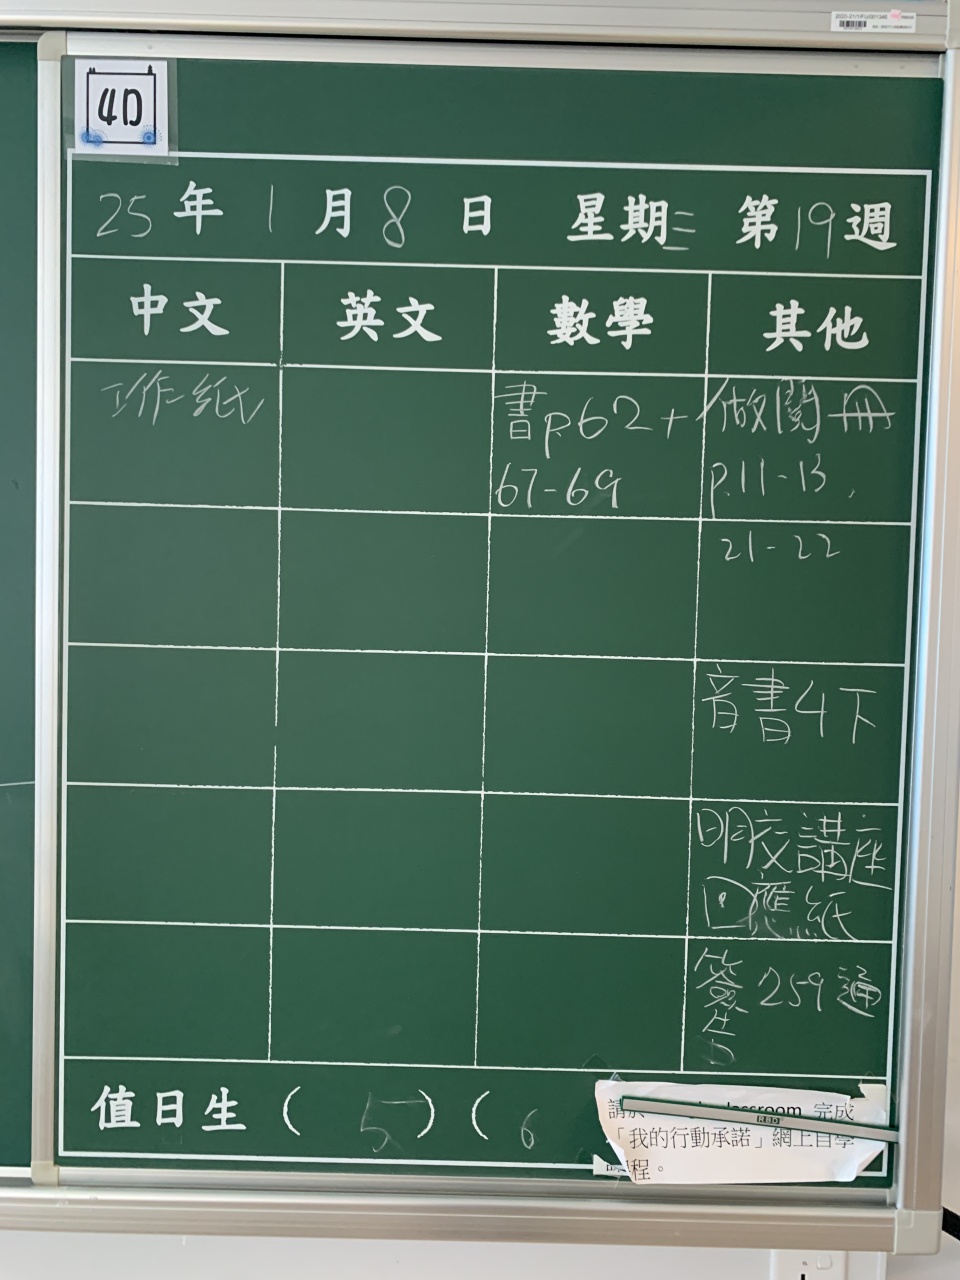 4D
25年1月8日 星期三 第19週
中文 英文 數學 其他
工作紙
書p.62+
67-69
做閱冊
p.11-13,
21-22
音書4下
明交講座
回應紙
簽259通
告
值日生(5)(6
請於 classroom 完成
「我的行動承諾」網上自學
程。
RBD